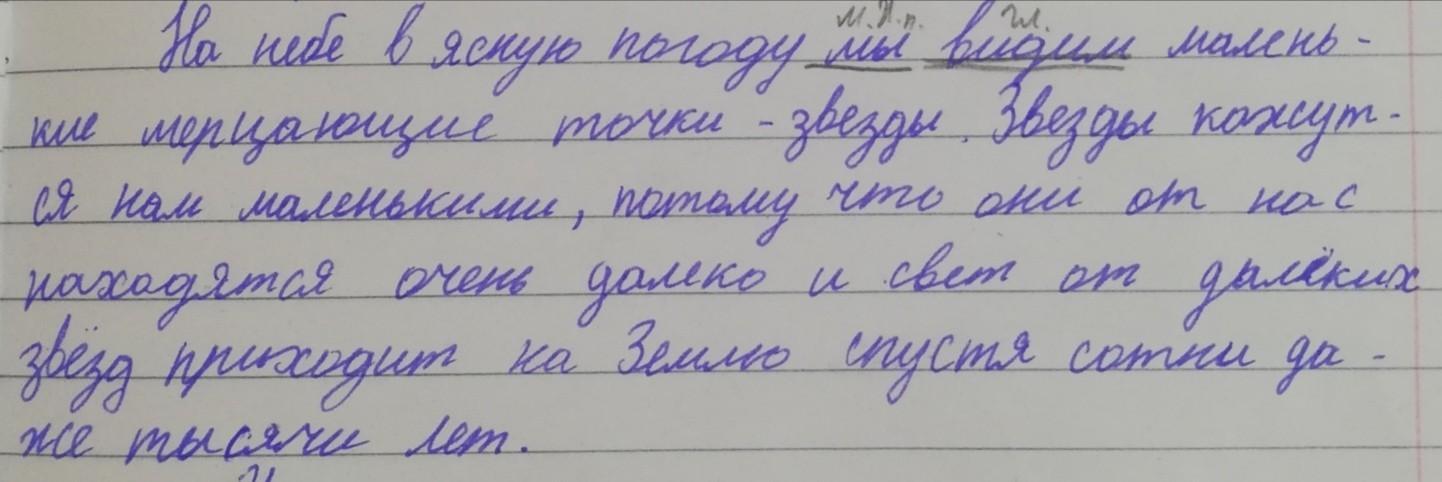 м.И.п. гл.
На небе в ясную погоду мы видим малень-
кие мерцающие точки - звезды. Звезды кажут-
ся нам маленькими, потому что они от нас
находятся очень далеко и свет от далёких
звёзд приходит на Землю спустя сотни да-
же тысячи лет.